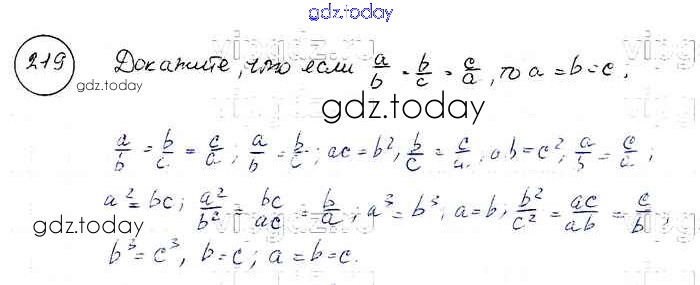 gdz.today
219 Докажите, что если a/b = b/c = c/a, то a = b = c;
gdz.today
gdz.today
a/b = b/c = c/a; a/b = b/c; ac = b², b/c = c/a; ab = c², a/b = c/a;
a² = bc; a²/b² = bc/ac = b/a; a³ = b³; a = b; b²/c² = ac/ab = c/b
gdz.today
b³ = c³, b = c; a = b = c.